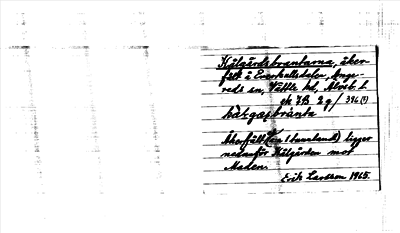 Kålgårdsbrantarna, åker-
fält å Evorhallsdalen, Ange-
reds sn, Vättle hd, Älvsb. l.
ek 7B 2g / 396 (?)
Åkerfält (ca 1 tunnland) ligger
nedanför Kålgården mot
Maden.
Erik Larsson 1965.